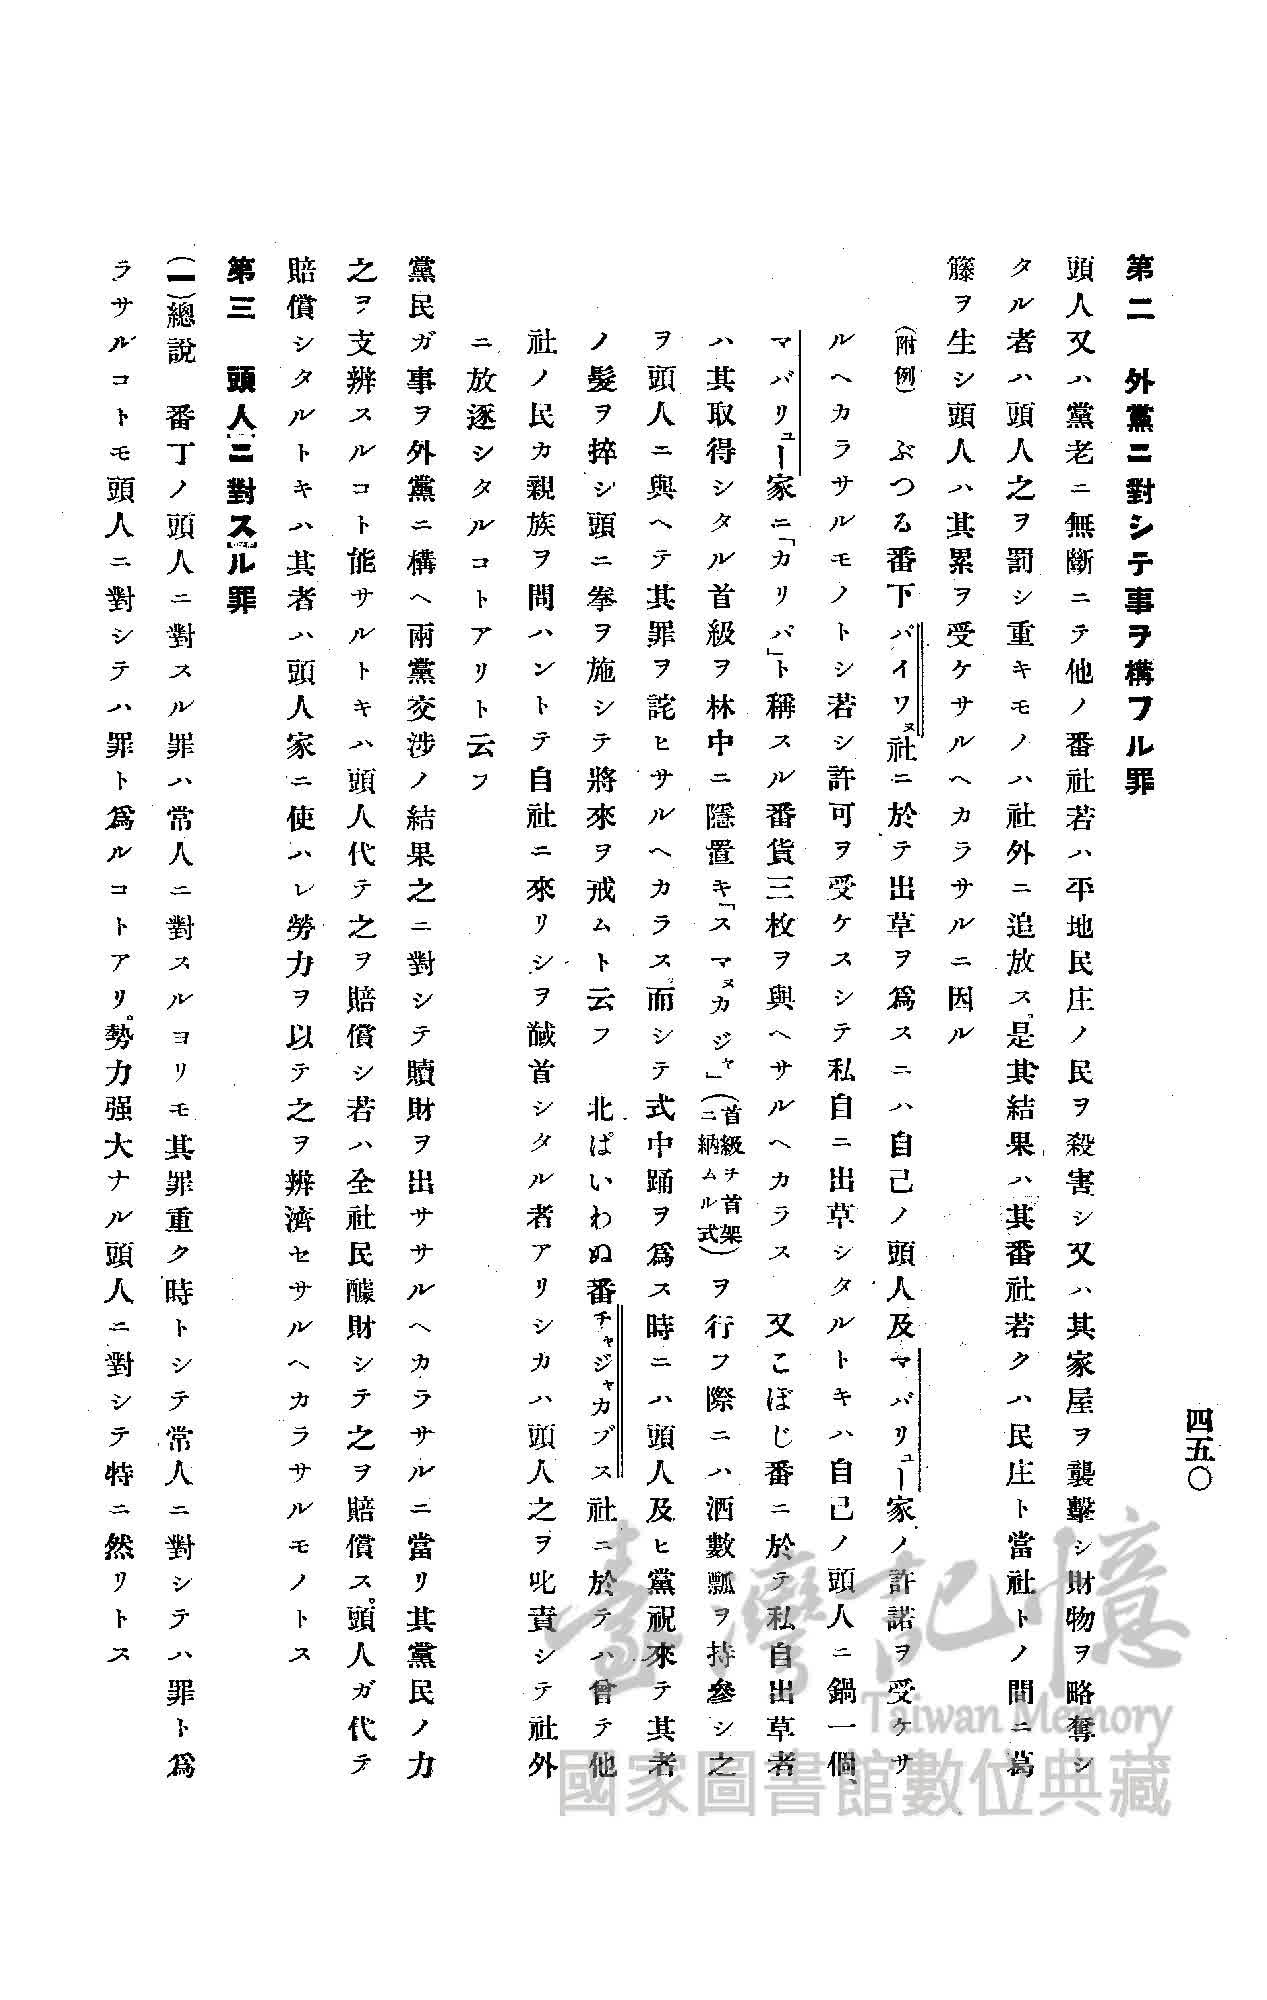 四五〇
第二　外黨ニ對シテ事ヲ構フル罪
頭人又ハ黨老ニ無斷ニテ他ノ番社若ハ平地民庄ノ民ヲ殺害シ又ハ其家屋ヲ襲擊シ財物ヲ略奪シ
タル者ハ頭人之ヲ罰シ重キモノハ社外ニ追放ス。是其結果ハ其番社若クハ民庄ト當社トノ間ニ葛
籐ヲ生シ頭人ハ其累ヲ受ケサルヘカラサルニ因ル
（附例）　ぶつる番下バイワヌ社ニ於テ出草ヲ爲スニハ自己ノ頭人及マバリュー家ノ許諾ヲ受ケサ
ルヘカラサルモノトシ若シ許可ヲ受ケスシテ私自ニ出草シタルトキハ自己ノ頭人ニ鍋一個、
マバリュー家ニ「カリパ」ト稱スル番貨三枚ヲ與ヘサルヘカラス　又こぼじ番ニ於テ私自出草者
ハ其取得シタル首級ヲ林中ニ隱置キ「スマヌカジャ」（首級ヲ首架ニ納ムル式）ヲ行フ際ニハ酒數瓢ヲ持參シ之
ヲ頭人ニ與ヘテ其罪ヲ詫ヒサルヘカラス。而シテ式中踊ヲ爲ス時ニハ頭人及ヒ黨祝來テ其者
ノ髮ヲ捽シ頭ニ拳ヲ施シテ將來ヲ戒ムト云フ　北ぱいわぬ番チャジャカブス社ニ於テハ曾テ他
社ノ民カ親族ヲ問ハントテ自社ニ來リシヲ馘首シタル者アリシカハ頭人之ヲ叱責シテ社外
ニ放逐シタルコトアリト云フ
黨民ガ事ヲ外黨ニ構ヘ兩黨交涉ノ結果之ニ對シテ贖財ヲ出ササルヘカラサルニ當リ其黨民ノ力
之ヲ支辨スルコト能サルトキハ頭人代テ之ヲ賠償シ若ハ全社民醵財シテ之ヲ賠償ス。頭人ガ代テ
賠償シタルトキハ其者ハ頭人家ニ使ハレ勞力ヲ以テ之ヲ辨濟セサルヘカラサルモノトス
第三　頭人ニ對スル罪
（一）總說　番丁ノ頭人ニ對スル罪ハ常人ニ對スルヨリモ其罪重ク時トシテ常人ニ對シテハ罪ト爲
ラサルコトモ頭人ニ對シテハ罪ト爲ルコトアリ。勢力强大ナル頭人ニ對シテ特ニ然リトス
臺灣記憶
Taiwan Memory
國家圖書館數位典藏